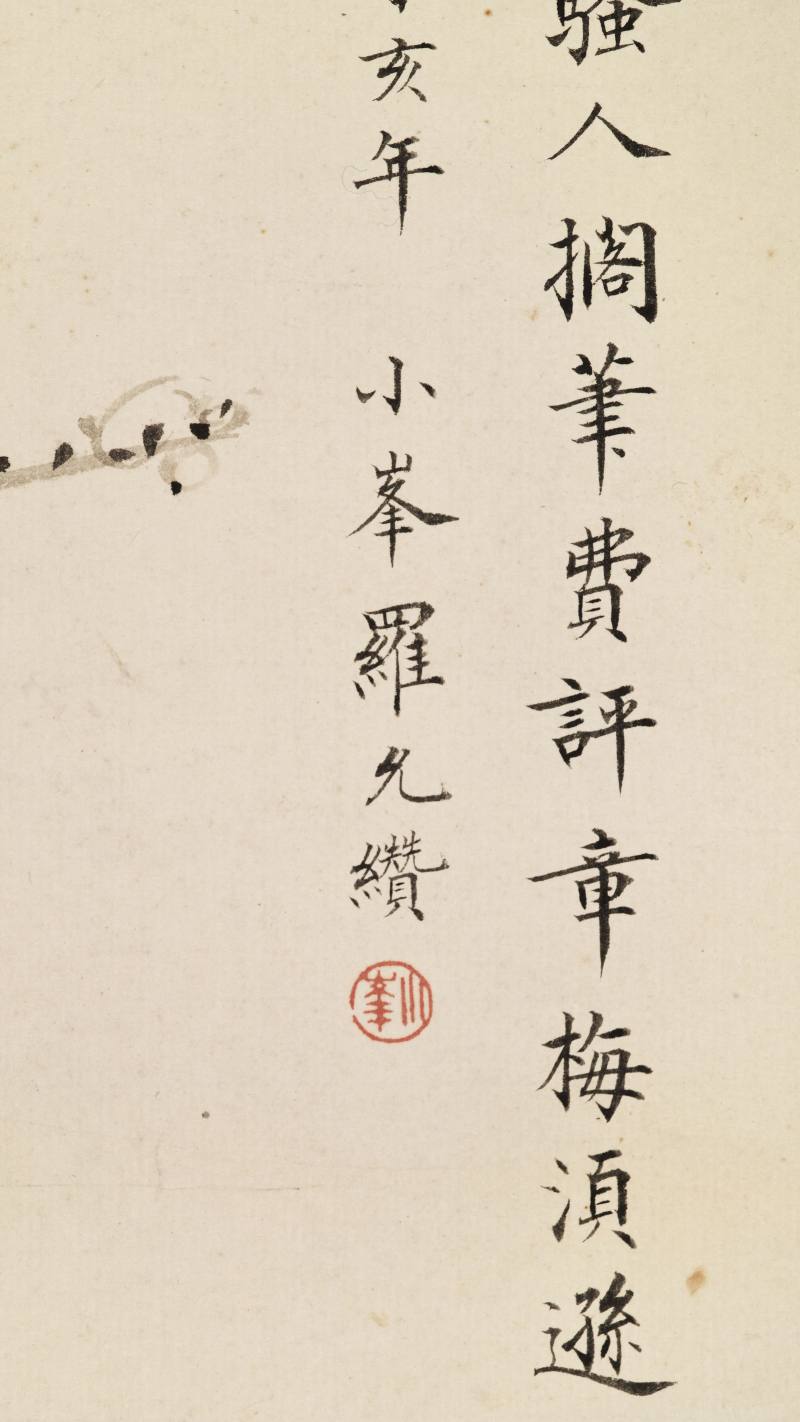 騷人擱筆費評章梅湏遜
亥年 小峯羅允纘
小峯